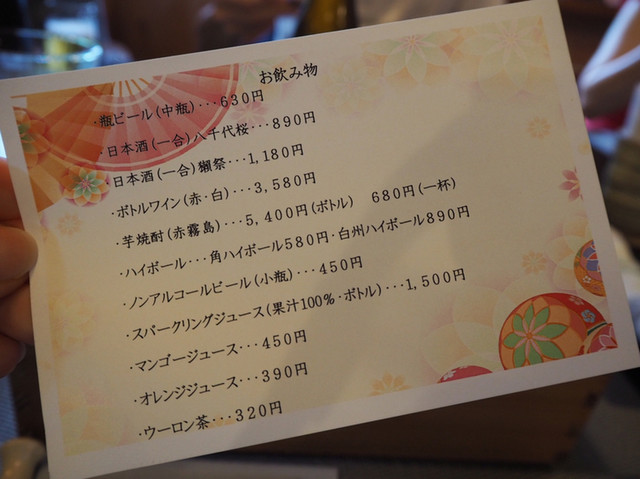 お飲み物
・瓶ビール(中瓶)・・・630円
・日本酒(一合)八千代桜・・・890円
・日本酒(一合)獺祭・・・1,180円
・ボトルワイン(赤・白)・・・3,580円
・芋焼酎(赤霧島)・・・5,400円(ボトル)　680円(一杯)
・ハイボール・・・角ハイボール580円・白州ハイボール890円
・ノンアルコールビール(小瓶)・・・450円
・スパークリングジュース(果汁100%・ボトル)・・・1,500円
・マンゴージュース・・・450円
・オレンジジュース・・・390円
・ウーロン茶・・・320円